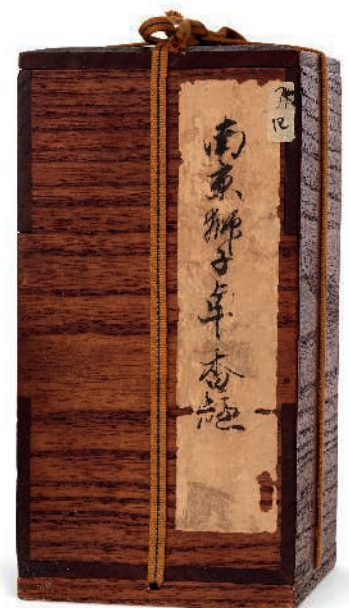 南京獅子卓香炉